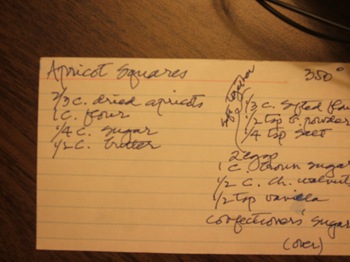 Apricot Squares
350°
2/3 c. dried apricots
1 c. flour
1/4 c. sugar
1/2 c. butter
sift together
1/3 c. sifted flou
1/2 tsp b. powder
1/4 tsp salt
2 eggs
1 c. brown sugar
1/2 c. ch. walnut
1/2 tsp vanilla
confectioners' sugar
(over)